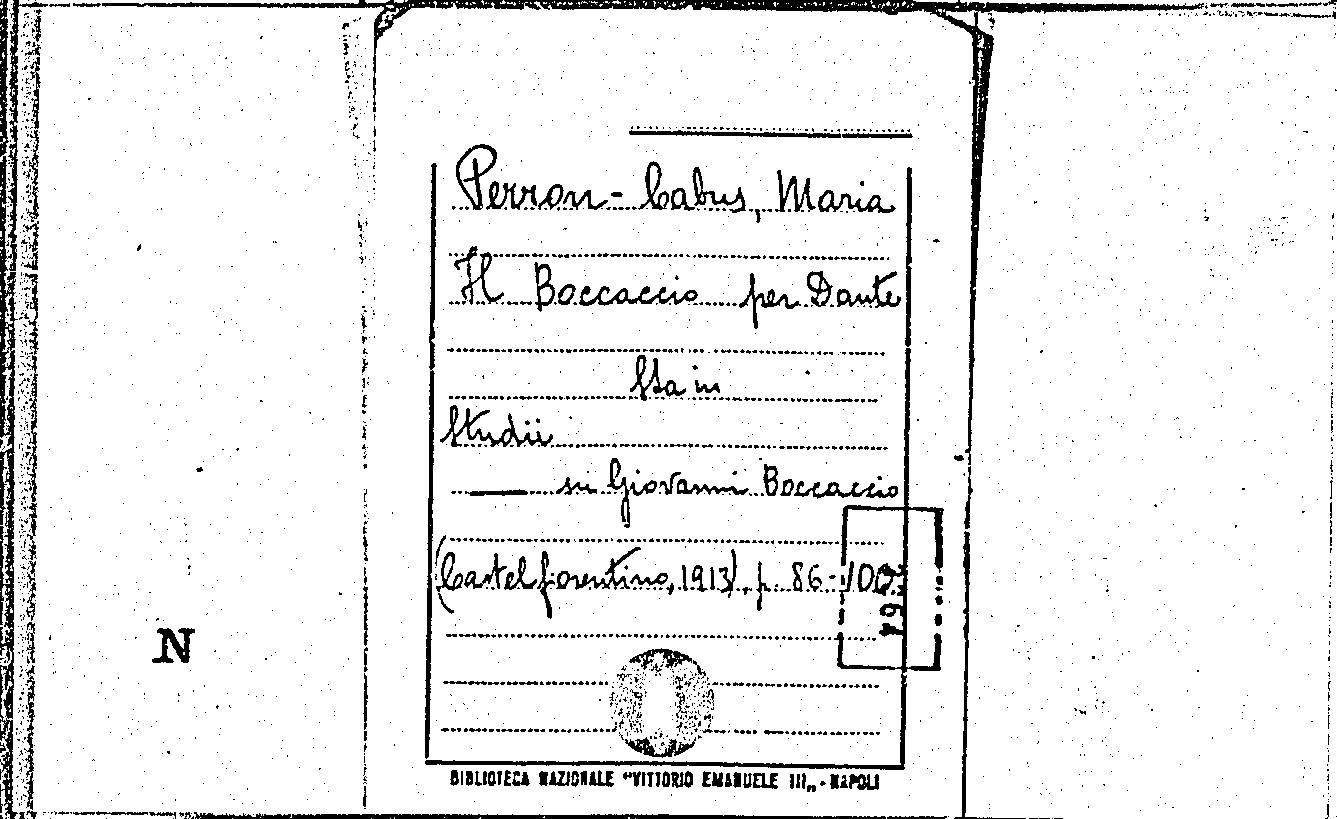 Perron-Cabus, Maria
Il Boccaccio per Dante
Sta in
Studii
—— su Giovanni Boccaccio
(Castelfiorentino, 1913), p. 86-100
N
BIBLIOTECA NAZIONALE "VITTORIO EMANUELE III„ - NAPOLI